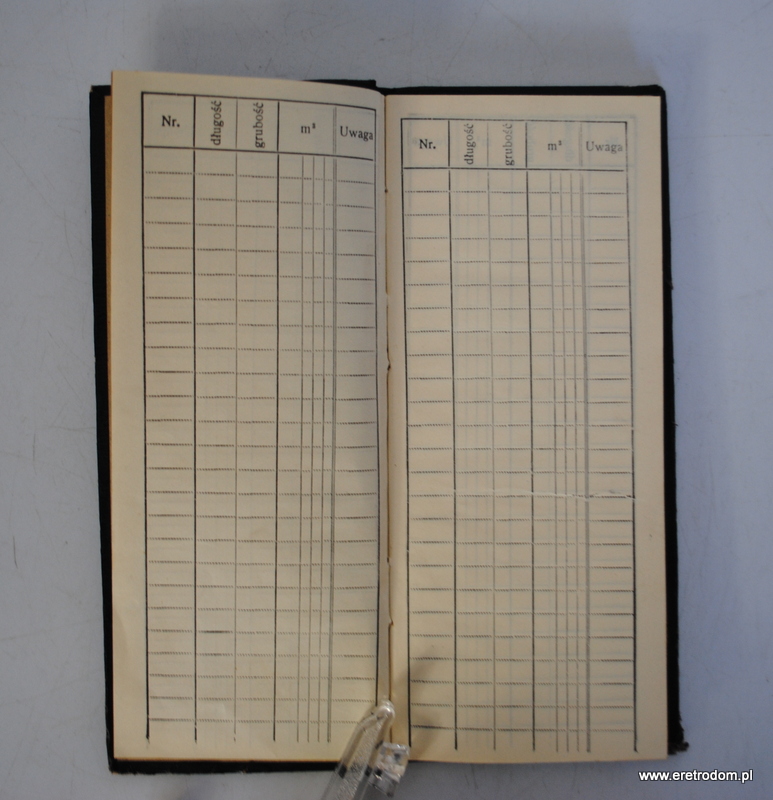 Nr. długość grubość m³ Uwaga
Nr. długość grubość m³ Uwaga
www.eretrodom.pl